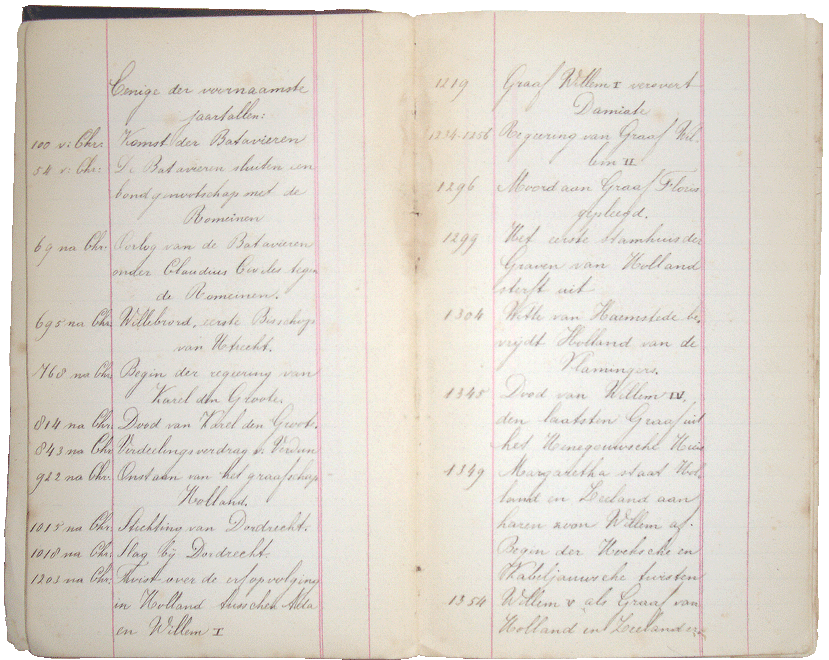 Eenige der voornaamste
jaartallen:
100 v: Chr: Komst der Batavieren
54 v: Chr: De Batavieren sluiten een
bondgenootschap met de
Romeinen
69 na Chr: Oorlog van de Batavieren
onder Claudius Civiles tegen
de Romeinen.
695 na Chr. Willebrord, eerste Bisschop
van Utrecht.
768 na Chr. Begin der regeering van
Karel den Groote.
814 na Chr. Dood van Karel den Groote.
843 na Chr Verdeelingsverdrag v. Verdun
922 na Chr. Onstaan van het graafschap
Holland.
1015 na Chr. Stichting van Dordrecht.
1018 na Chr. Slag bij Dordrecht.
1203 na Chr. Twist over de erfopvolging
in Holland tusschen Ada
en Willem I
1219 Graaf Willem I verovert
Damiate
1234-1256 Regeering van Graaf Wil-
lem II
1296 Moord aan Graaf Floris
gepleegd.
1299 Het eerste stamhuis der
Graven van Holland
sterft uit
1304 Witte van Haemstede be-
vrijdt Holland van de
Vlamingers.
1345 Dood van Willem IV,
den laatsten Graaf uit
het Henegouwsche Huis
1349 Margaretha staat Hol-
land en Zeeland aan
haren zoon Willem af.
Begin der Hoeksche en
Kabeljauwsche twisten
1354 Willem V als Graaf van
Holland en Zeeland er-